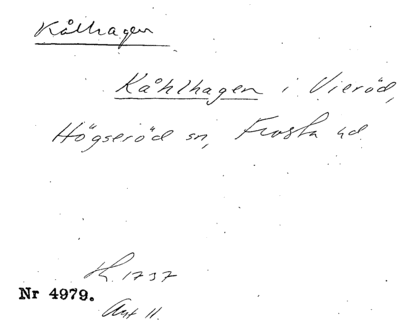 Kålhagen
Kåhlhagen i Vieröd,
Högseröd sn, Frosta hd
1737
Nr 4979.
Akt 11.